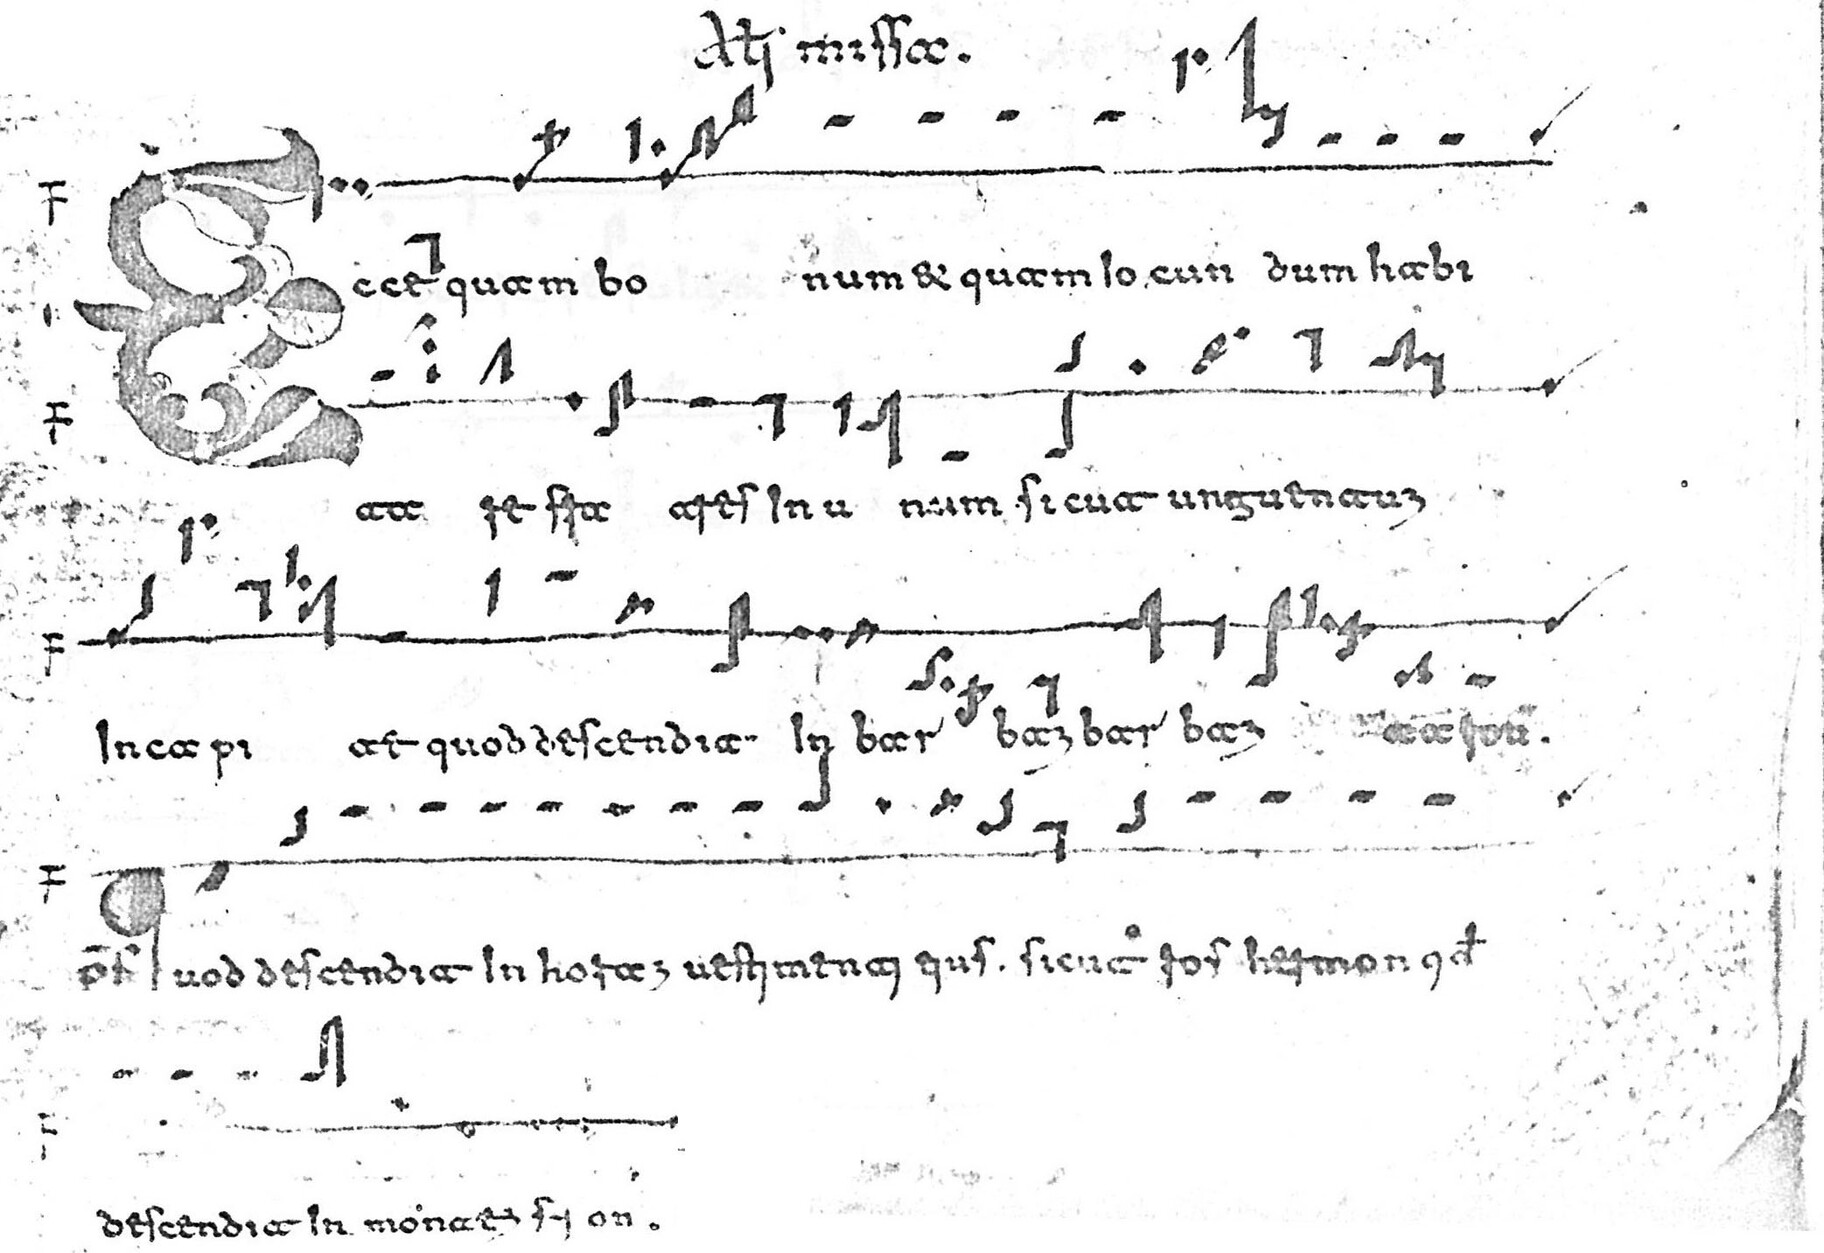 missa.
Ecce quam bo num & quam Iocun dum habi
ta re fra tres In u num sicut unguentum
In capi te quod descendit In bar bam bar bam aaron.
Quod descendit In horam uestimenti eius. sicut ros hermon qd
descendit In monte si on.